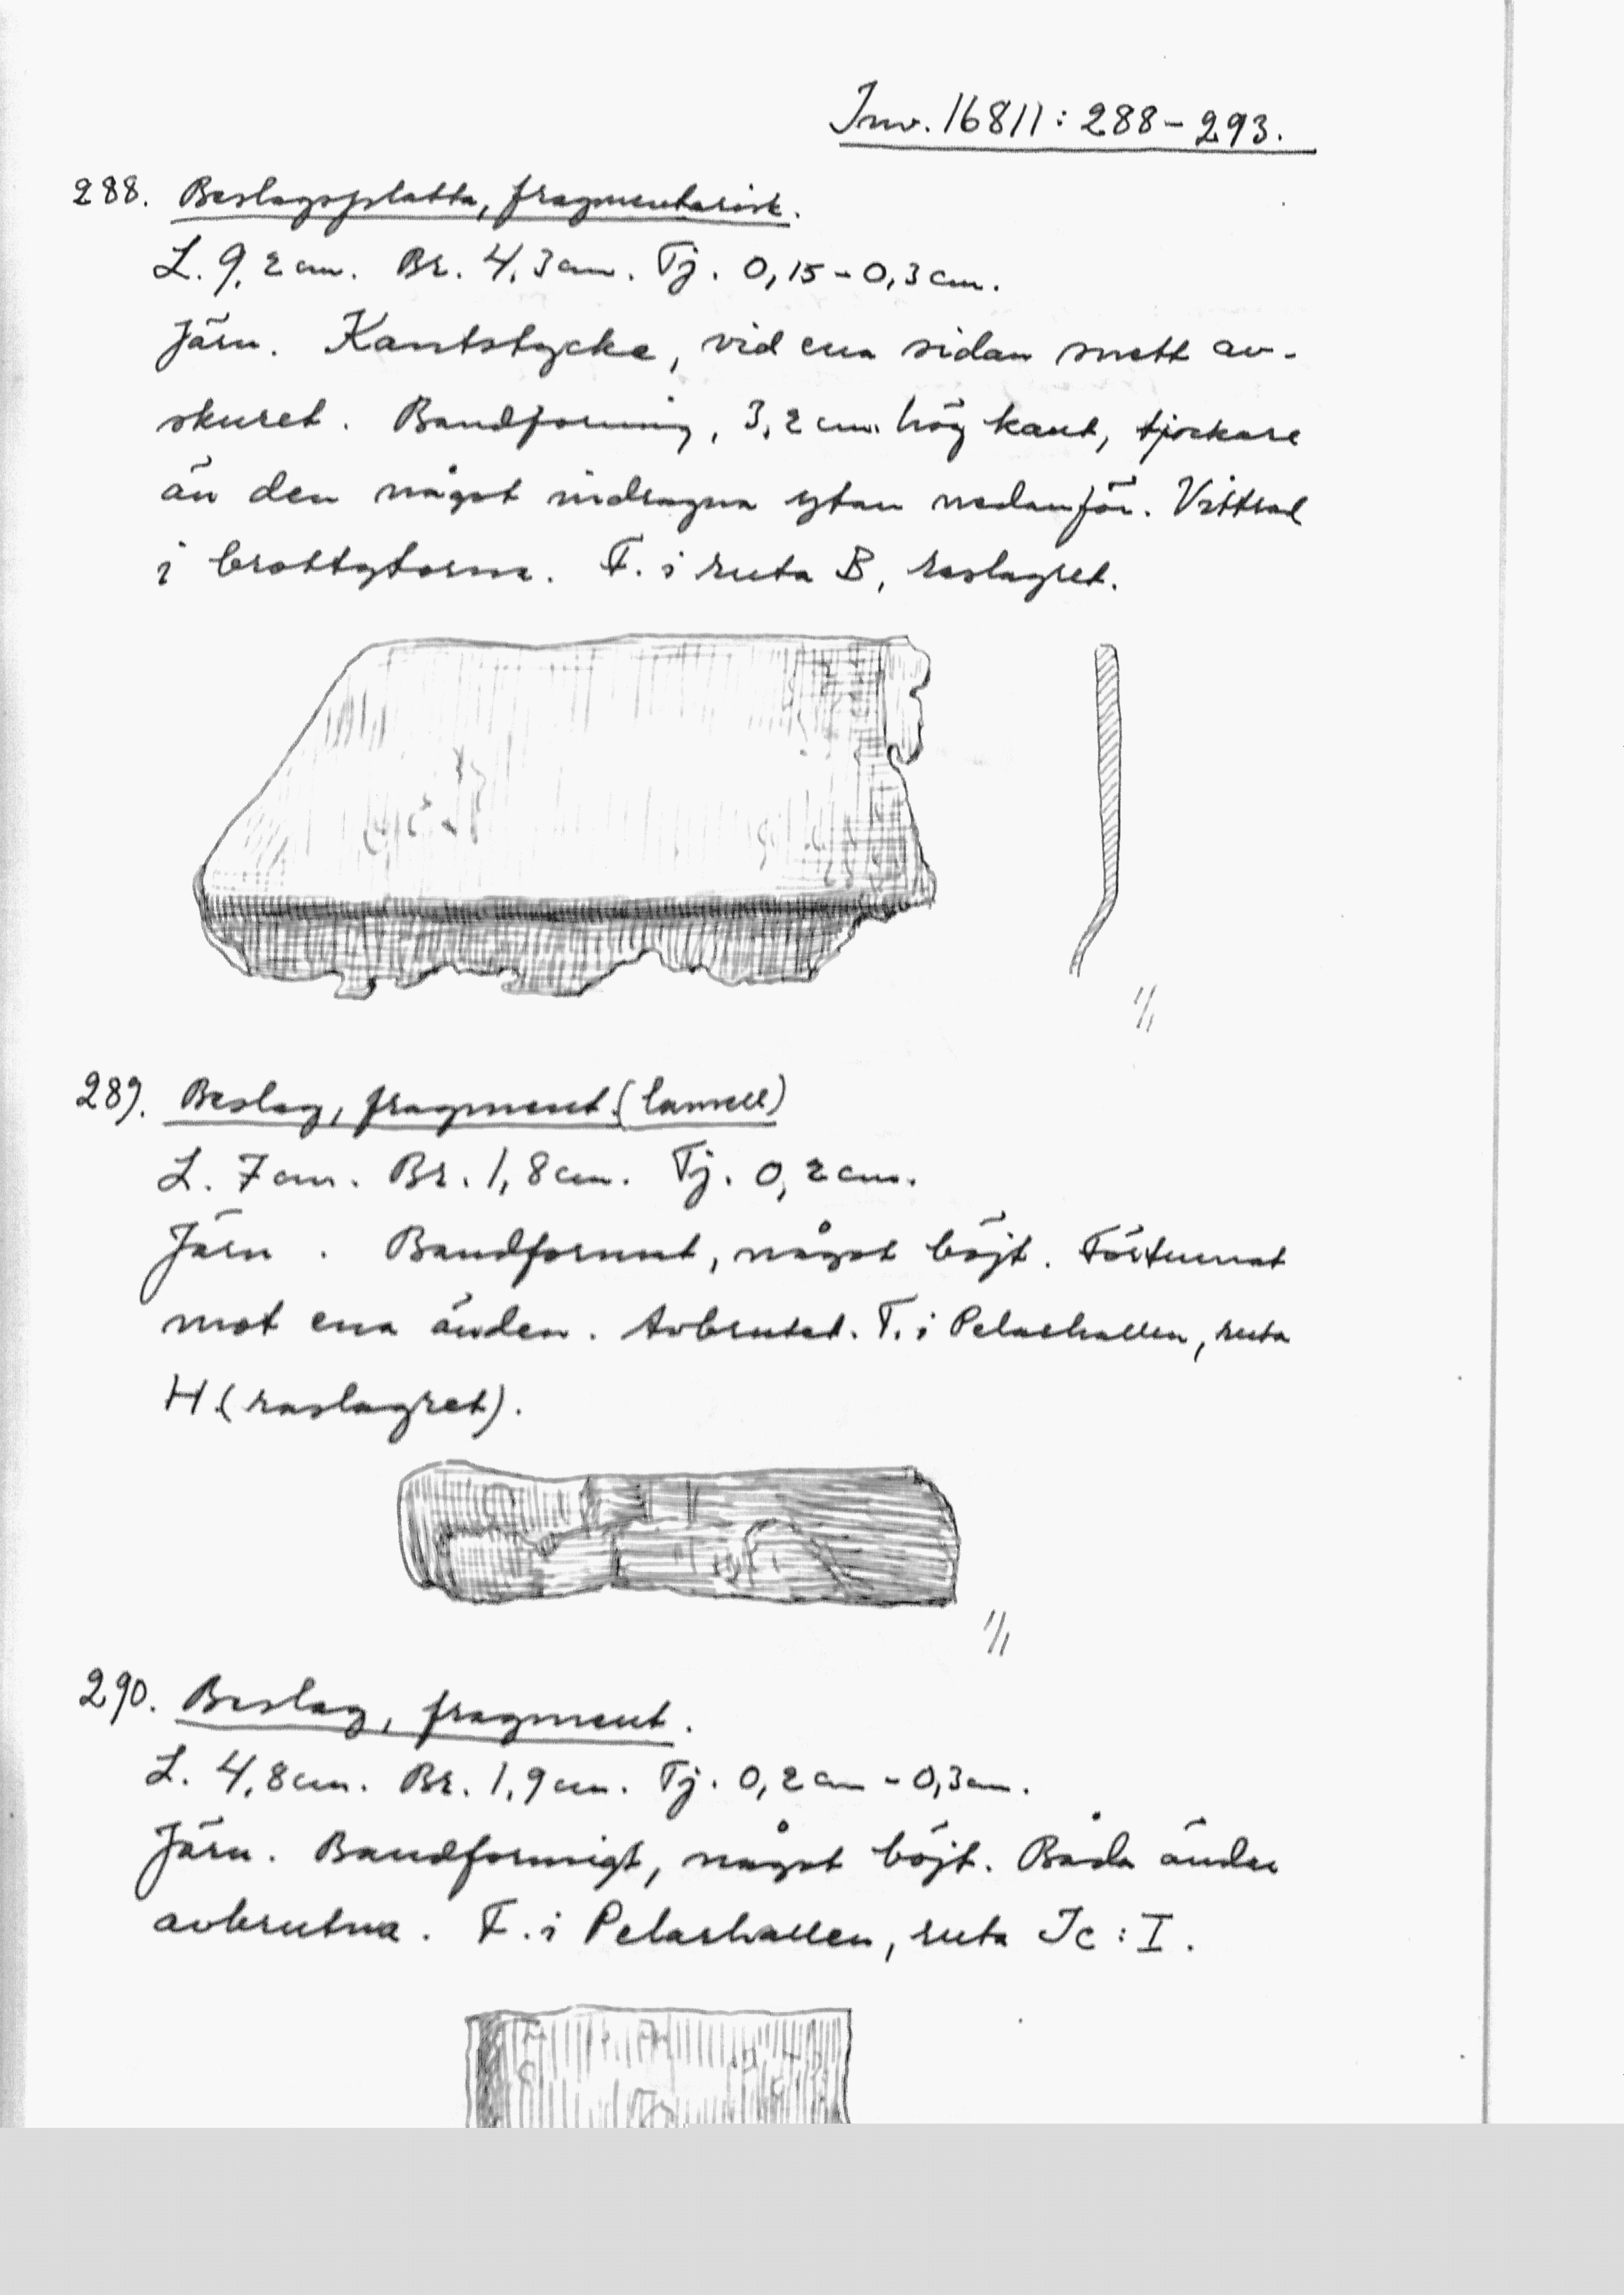 Inv. 16811: 288-293.
288. Beslagsplatta, fragmentarisk.
L. 9,2 cm. Br. 4,3 cm. Tj. 0,15-0,3 cm.
Järn. Kantstycke, vid ena sidan snett av-
skuret. Bandformig, 3,2 cm. hög kant, tjockare
än den något indragna ytan nedanför. Vittrad
i brottytorna. F. i ruta B, raslagret.
1/1
289. Beslag, fragment. (lamell)
L. 7 cm. Br. 1,8 cm. Tj. 0,2 cm.
Järn. Bandformat, något böjt. Förtunnat
mot ena änden. Avbrutet. F. i Pelarhallen, ruta
H. (raslagret).
1/1
290. Beslag, fragment.
L. 4,8 cm. Br. 1,9 cm. Tj. 0,2 cm - 0,3 cm.
Järn. Bandformigt, något böjt. Båda ändar
avbrutna. F. i Pelarhallen, ruta Ic: I.